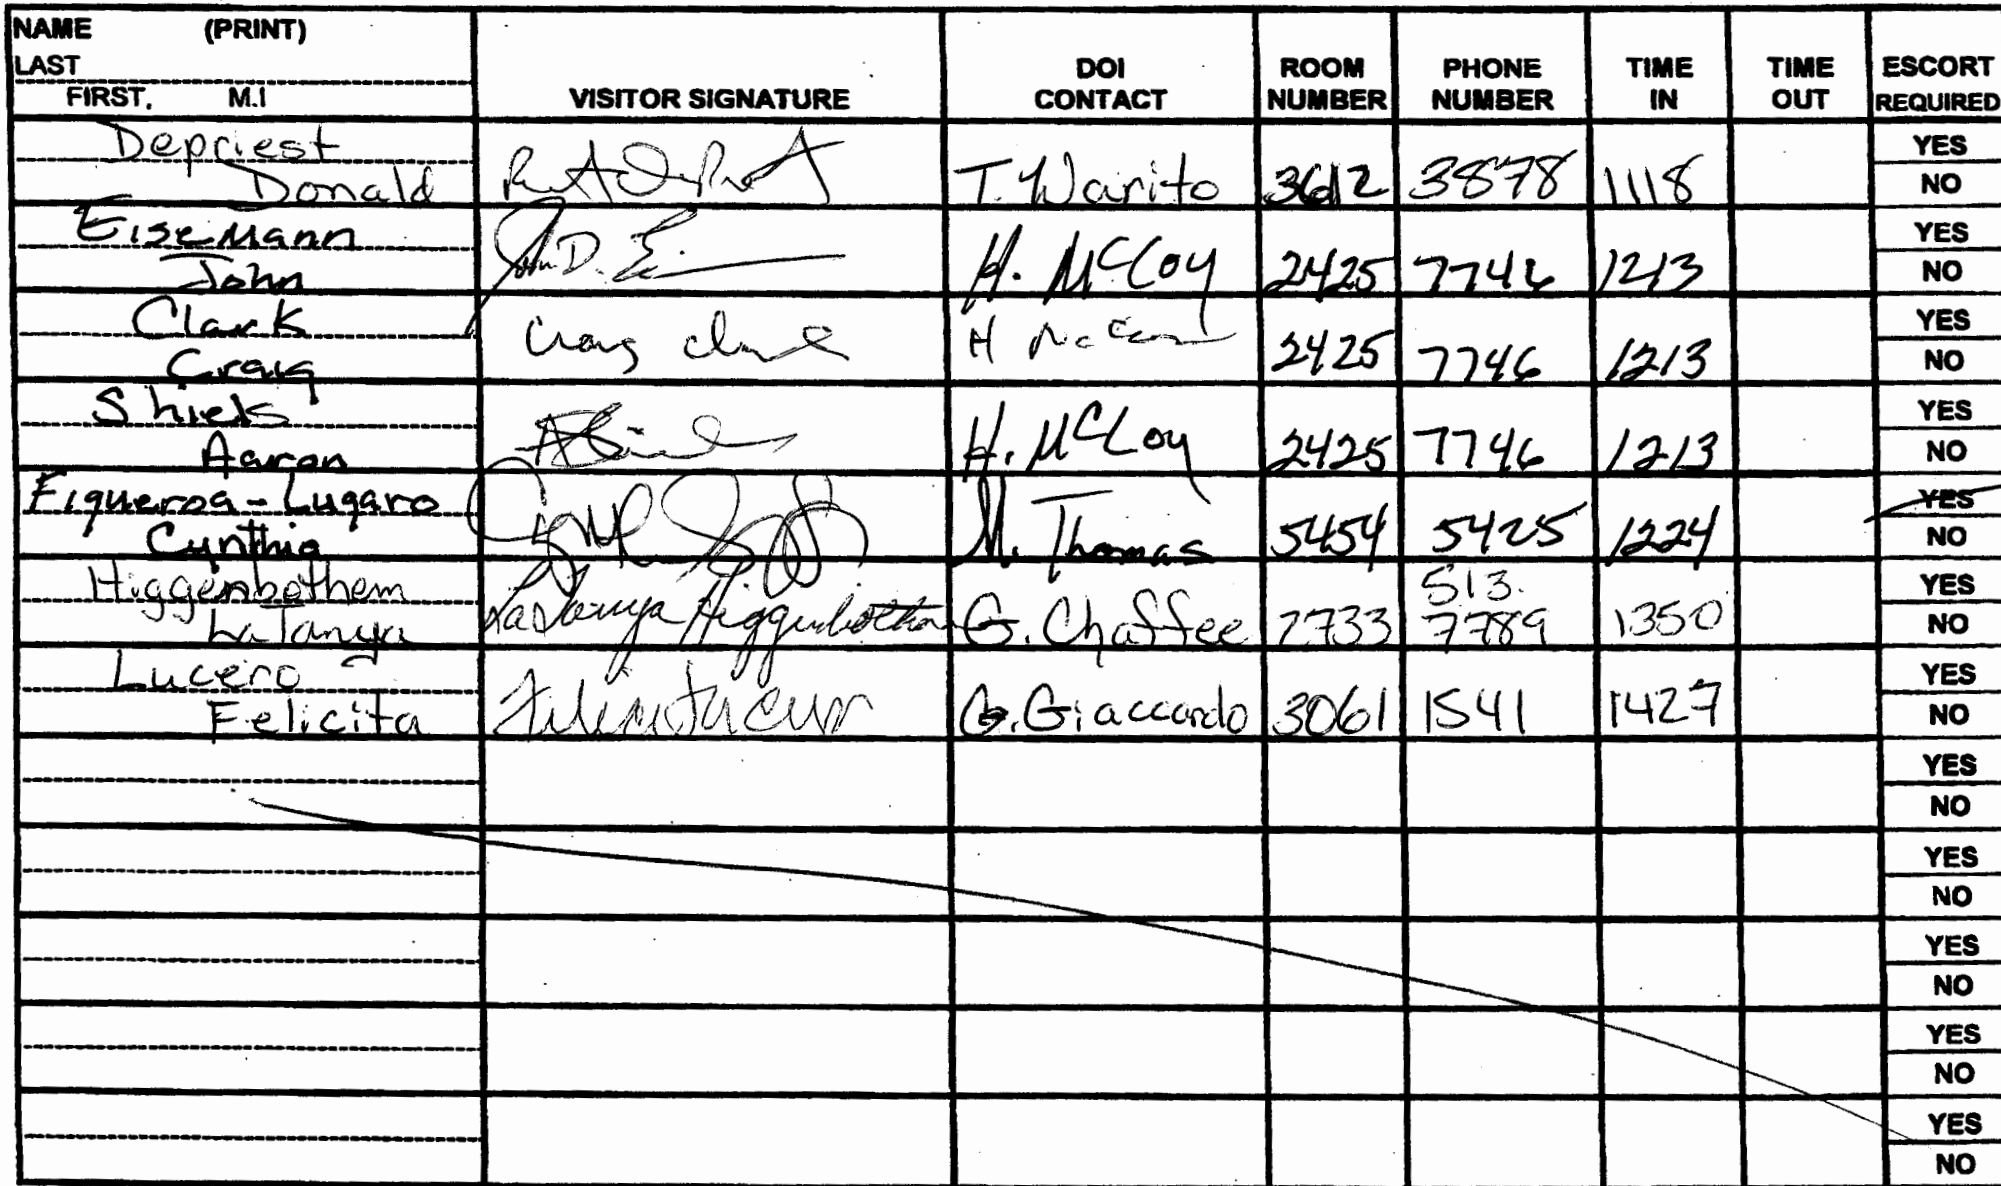 NAME (PRINT)
LAST
FIRST, M.I
VISITOR SIGNATURE
DOI CONTACT
ROOM NUMBER
PHONE NUMBER
TIME IN
TIME OUT
ESCORT REQUIRED
Depriest YES
Donald T. Warito 3612 3878 1118 NO
Eisemann YES
John John D. H. McCoy 2425 7746 1213 NO
Clark YES
Craig Craig H 2425 7746 1213 NO
Shiels YES
Aaron H. McCoy 2425 7746 1213 NO
Figueroa-Lugaro YES
Cynthia M. Thomas 5454 5425 1224 NO
Higgenbothem 513. YES
LaTanya LaTanya Higgenbothem G. Chaffee 2733 7789 1350 NO
Lucero YES
Felicita G. Giaccardo 3061 1541 1427 NO
YES
NO
YES
NO
YES
NO
YES
NO
YES
NO